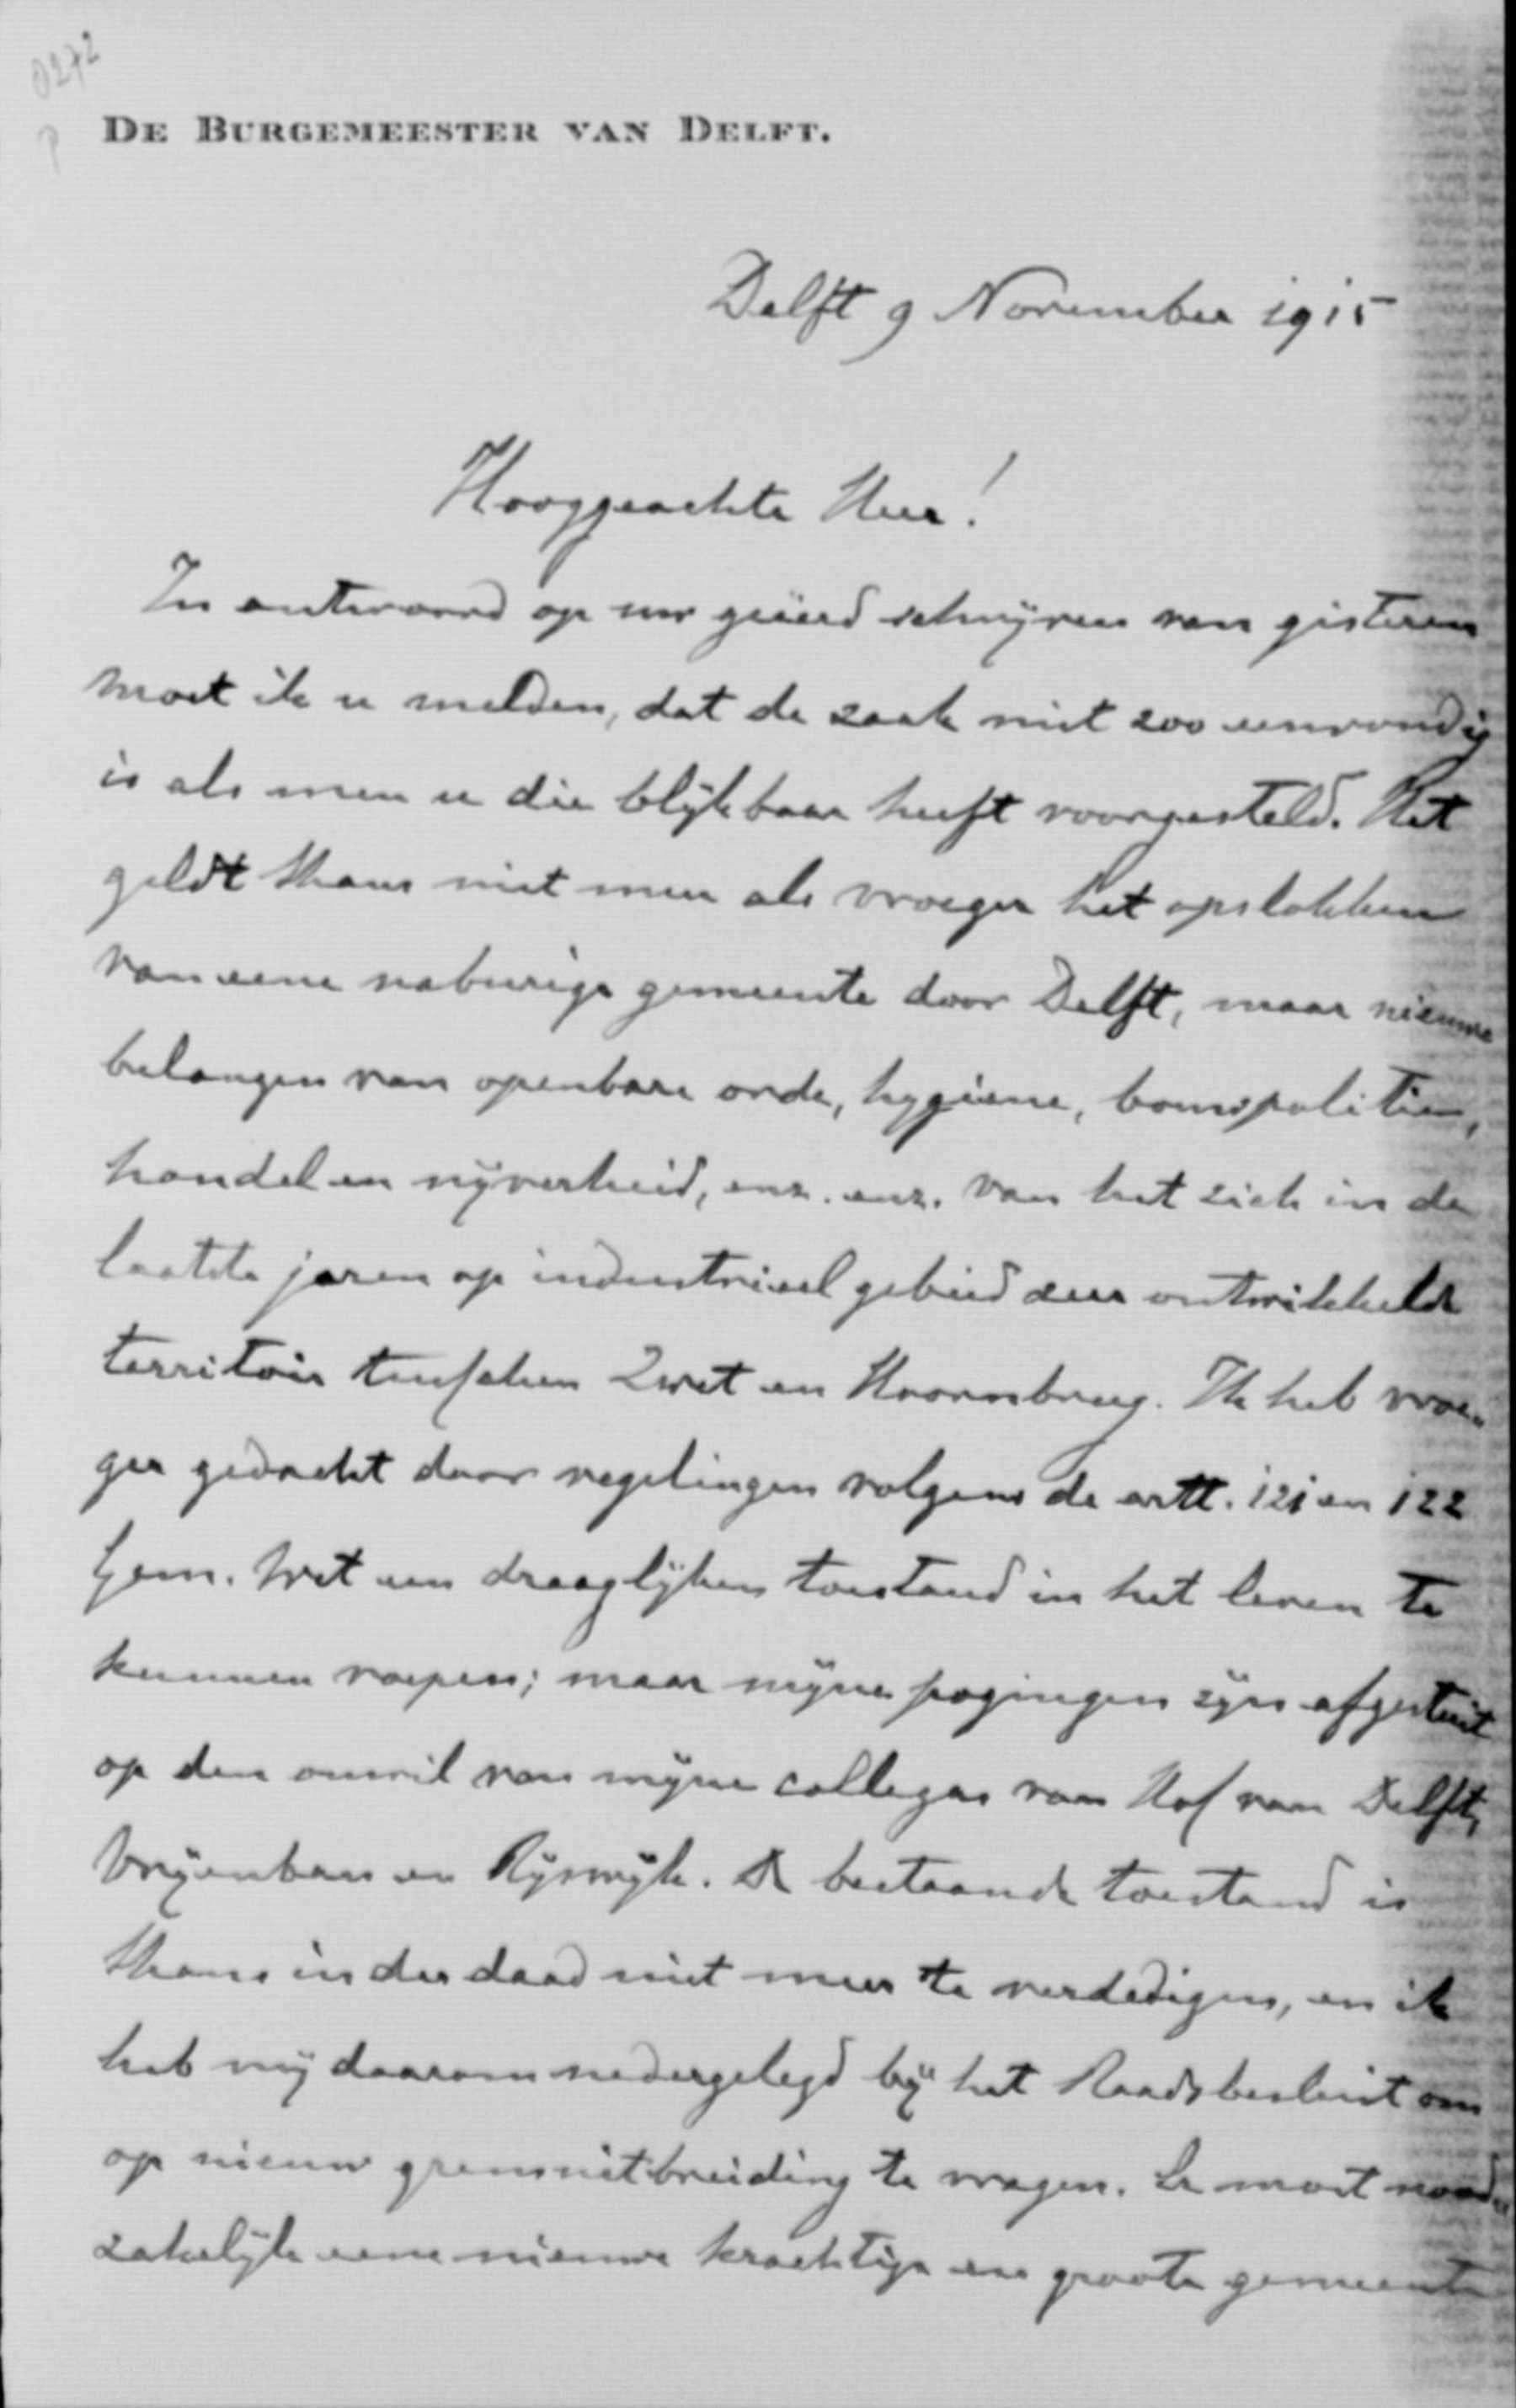 0272
P
DE BURGEMEESTER VAN DELFT.
Delft 9 November 1915
Hooggeachte Heer!
In antwoord op uw geëerd schrijven van gisteren
moet ik u melden, dat de zaak niet zoo eenvoudig
is als men u die blijkbaar heeft voorgesteld. Het
geldt thans niet meer als vroeger het opslokken
van eene naburige gemeente door Delft, maar nieuwe
belangen van openbare orde, hygiene, bouwpolitie,
handel en nijverheid, enz. enz. van het zich in de
laatste jaren op industrieel gebied zeer ontwikkelde
territoir tusschen Zwet en Hoornbrug. Ik heb vroe-
ger gedacht door regelingen volgens de artt. 121 en 122
Gem. Wet een draaglijken toestand in het leven te
kunnen roepen; maar mijne pogingen zijn afgestuit
op den onwil van mijne collegas van Hof van Delft,
Vrijenban en Rijswijk. De bestaande toestand is
thans inderdaad niet meer te verdedigen, en ik
heb mij daarom nedergelegd bij het Raadsbesluit om
op nieuw grensuitbreiding te vragen. Er moet nood-
zakelijk eene nieuwe krachtige en groote gemeente